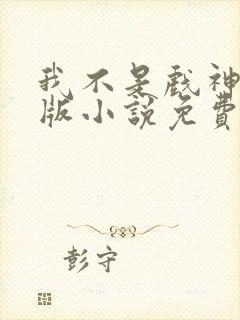 我不是戏神
版小說免費
彭守